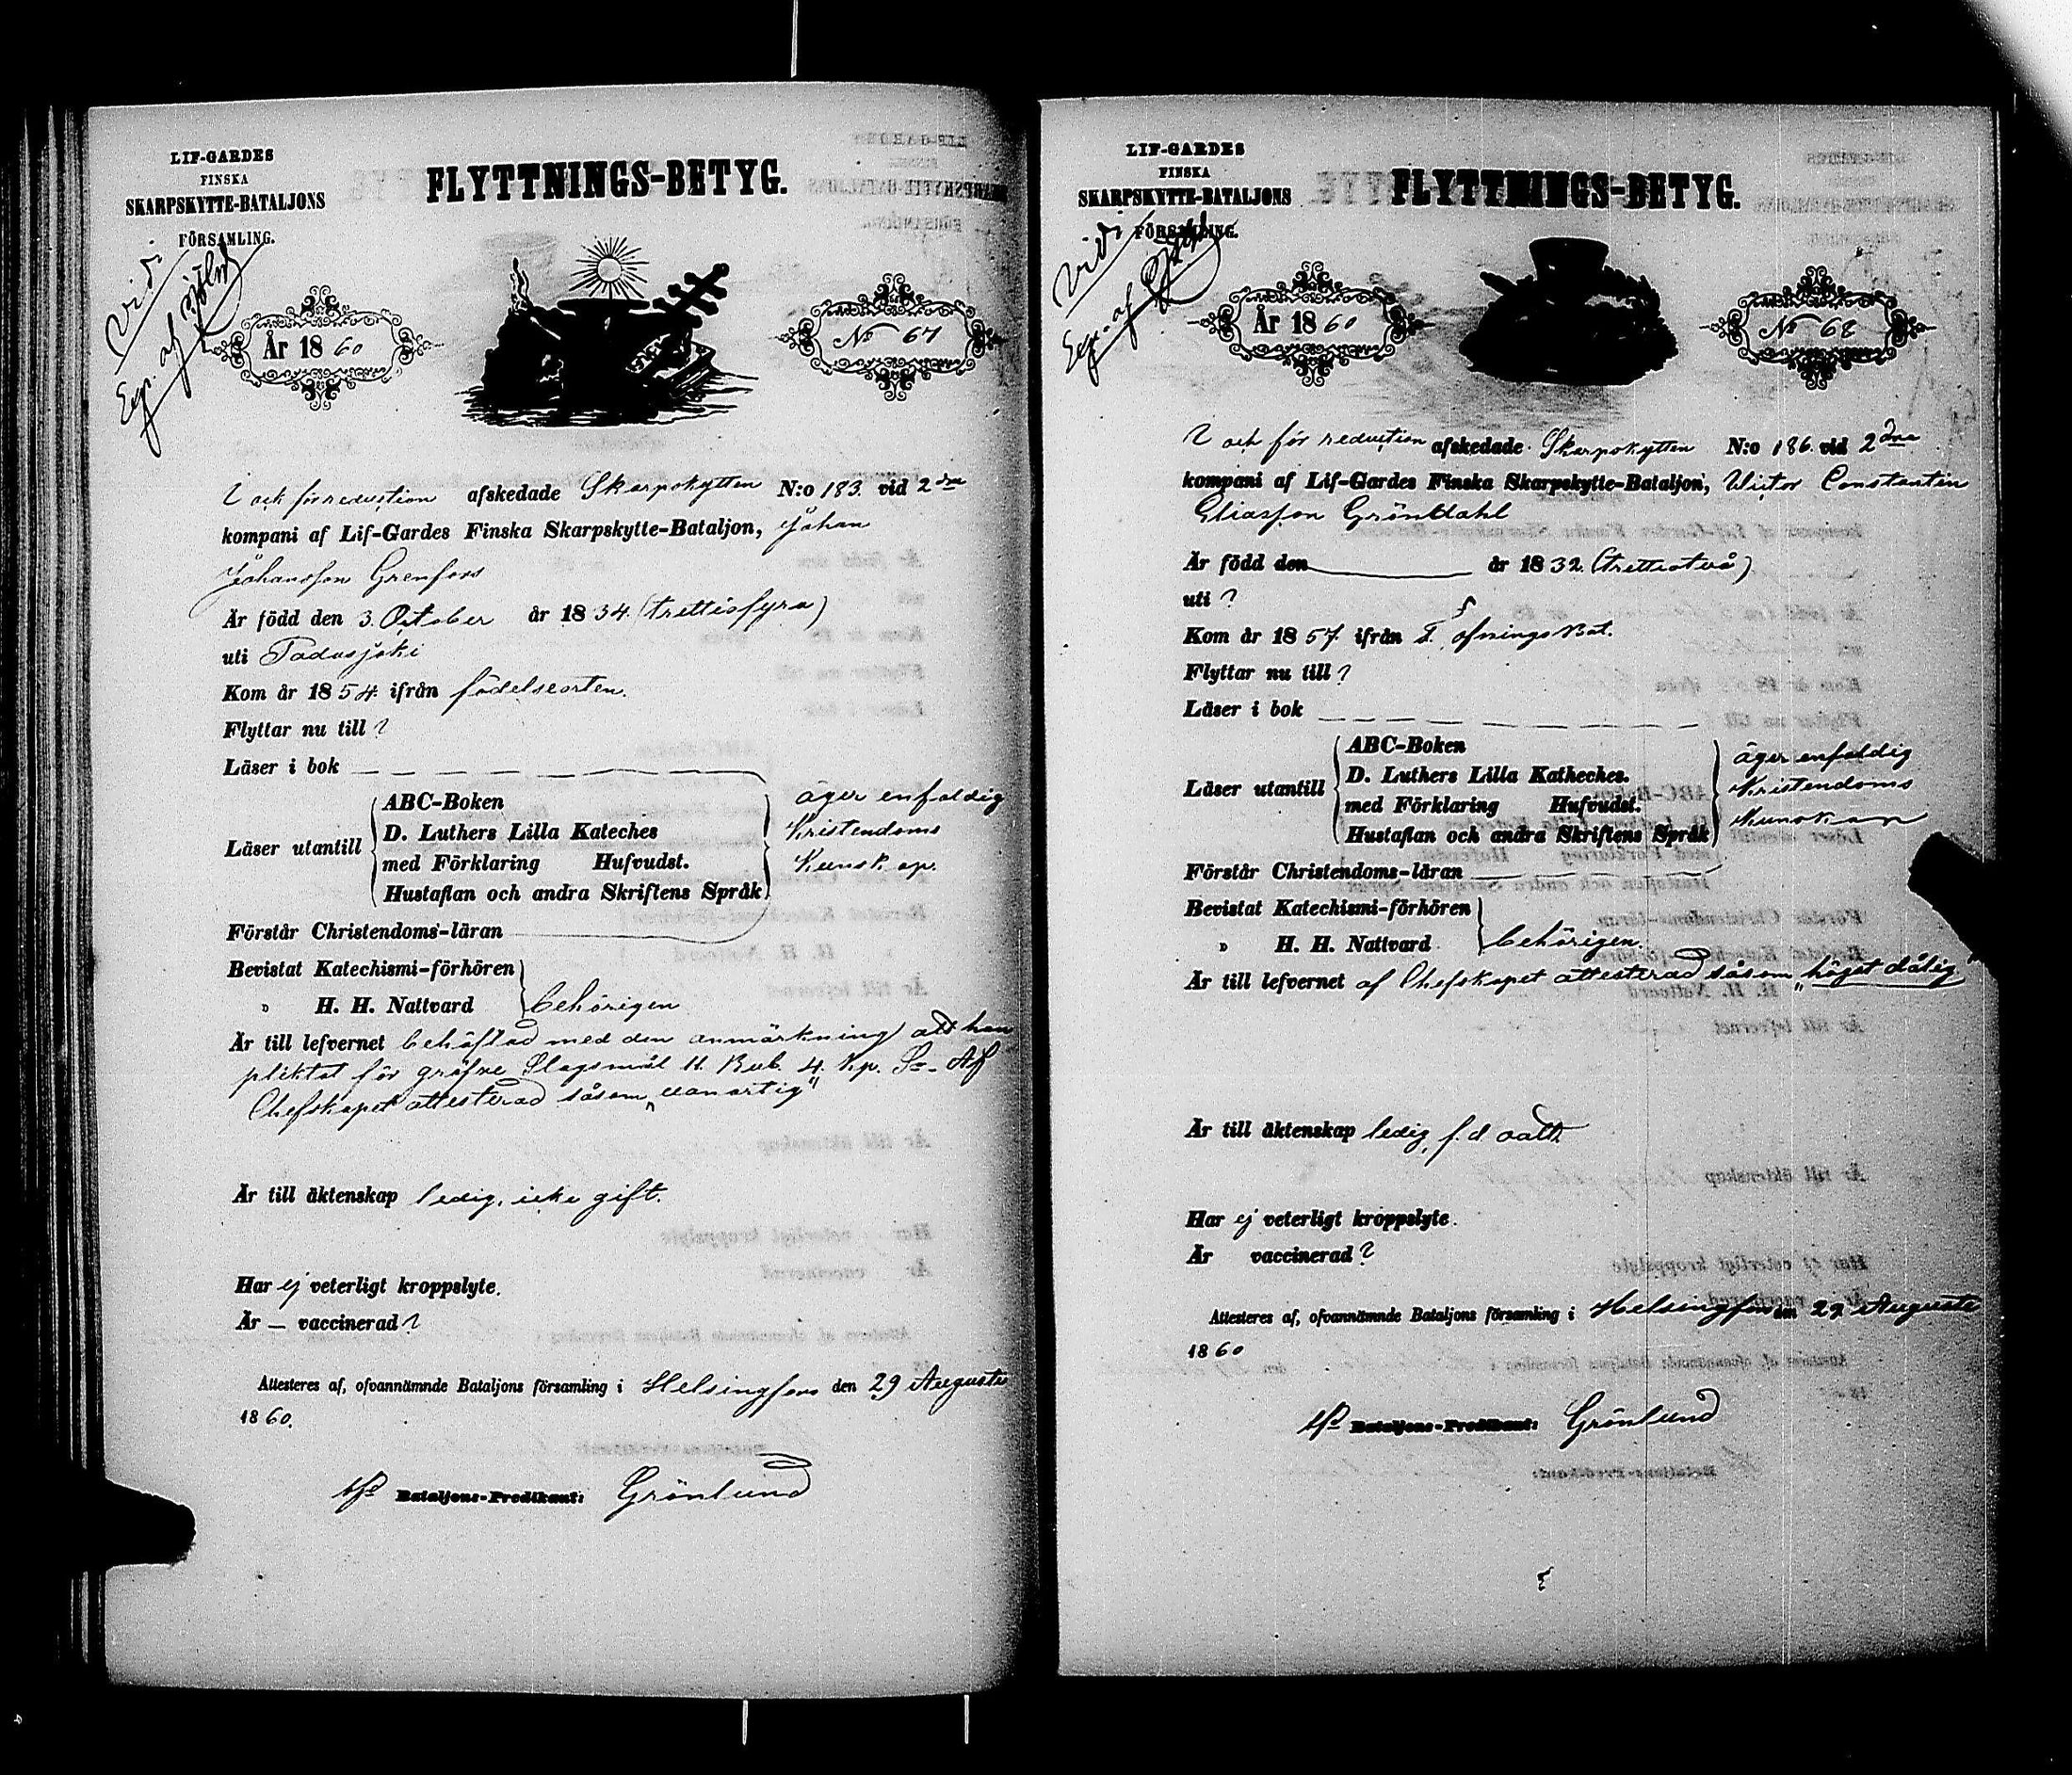 LIF-GARDES
FINSKA
SKARPSKYTTE-BATALJONS
FÖRSAMLING.
FLYTTNINGS-BETYG.
Vidi
År 1860
No 67
I och för reduction afskedade Skarpskytten N:o 183. vid 2dra
kompani af Lif-Gardes Finska Skarpskytte-Bataljon, Johan
Johansson Grenfors
Är född den 3. October år 1834. (trettiofyra)
uti Padasjoki
Kom år 1854. ifrån födelseorten.
Flyttar nu till ?
Läser i bok
Läser utantill
ABC-Boken
D. Luthers Lilla Kateches
med Förklaring Hufvudst.
Hustaflan och andra Skriftens Språk
äger enfaldig
Kristendoms
Kunskap.
Förstår Christendoms-läran
Bevistat Katechismi-förhören
„ H. H. Nattvard
behörigen
Är till lefvernet behäftad med den anmärkning att han
pliktat för gröfre Slagsmål 11. Rub. 4. Kp. Af
Chefskapet attesterad såsom „vanartig"
Är till äktenskap ledig, icke gift.
Har ej veterligt kroppslyte.
Är – vaccinerad ?
Attesteres af, ofvannämnde Bataljons församling i Helsingfors den 29 Augusti
1860.
Bataljons-Predikant: Grönlund
LIF-GARDES
FINSKA
SKARPSKYTTE-BATALJONS
FÖRSAMLING.
FLYTTNINGS-BETYG.
Vidi
År 1860
No 68
I och för reduction afskedade Skarpskytten N:o 186. vid 2dra
kompani af Lif-Gardes Finska Skarpskytte-Bataljon, Victor Constantin
Eliasson Gröndahl
Är född den år 1832. (trettiotvå)
uti ?
Kom år 1857. ifrån öfnings Bat.
Flyttar nu till ?
Läser i bok
Läser utantill
ABC-Boken
D. Luthers Lilla Katheches.
med Förklaring Hufvudst.
Hustaflan och andra Skriftens Språk
äger enfaldig
Kristendoms
Kunskap
Förstår Christendoms-läran
Bevistat Katechismi-förhören
„ H. H. Nattvard
behörigen.
Är till lefvernet af Chefskapet attesterad såsom „högst dålig"
Är till äktenskap ledig, f.d.
Har ej veterligt kroppslyte.
Är vaccinerad ?
Attesteres af, ofvannämnde Bataljons församling i Helsingfors den 29 Augusti
1860
Bataljons-Predikant: Grönlund